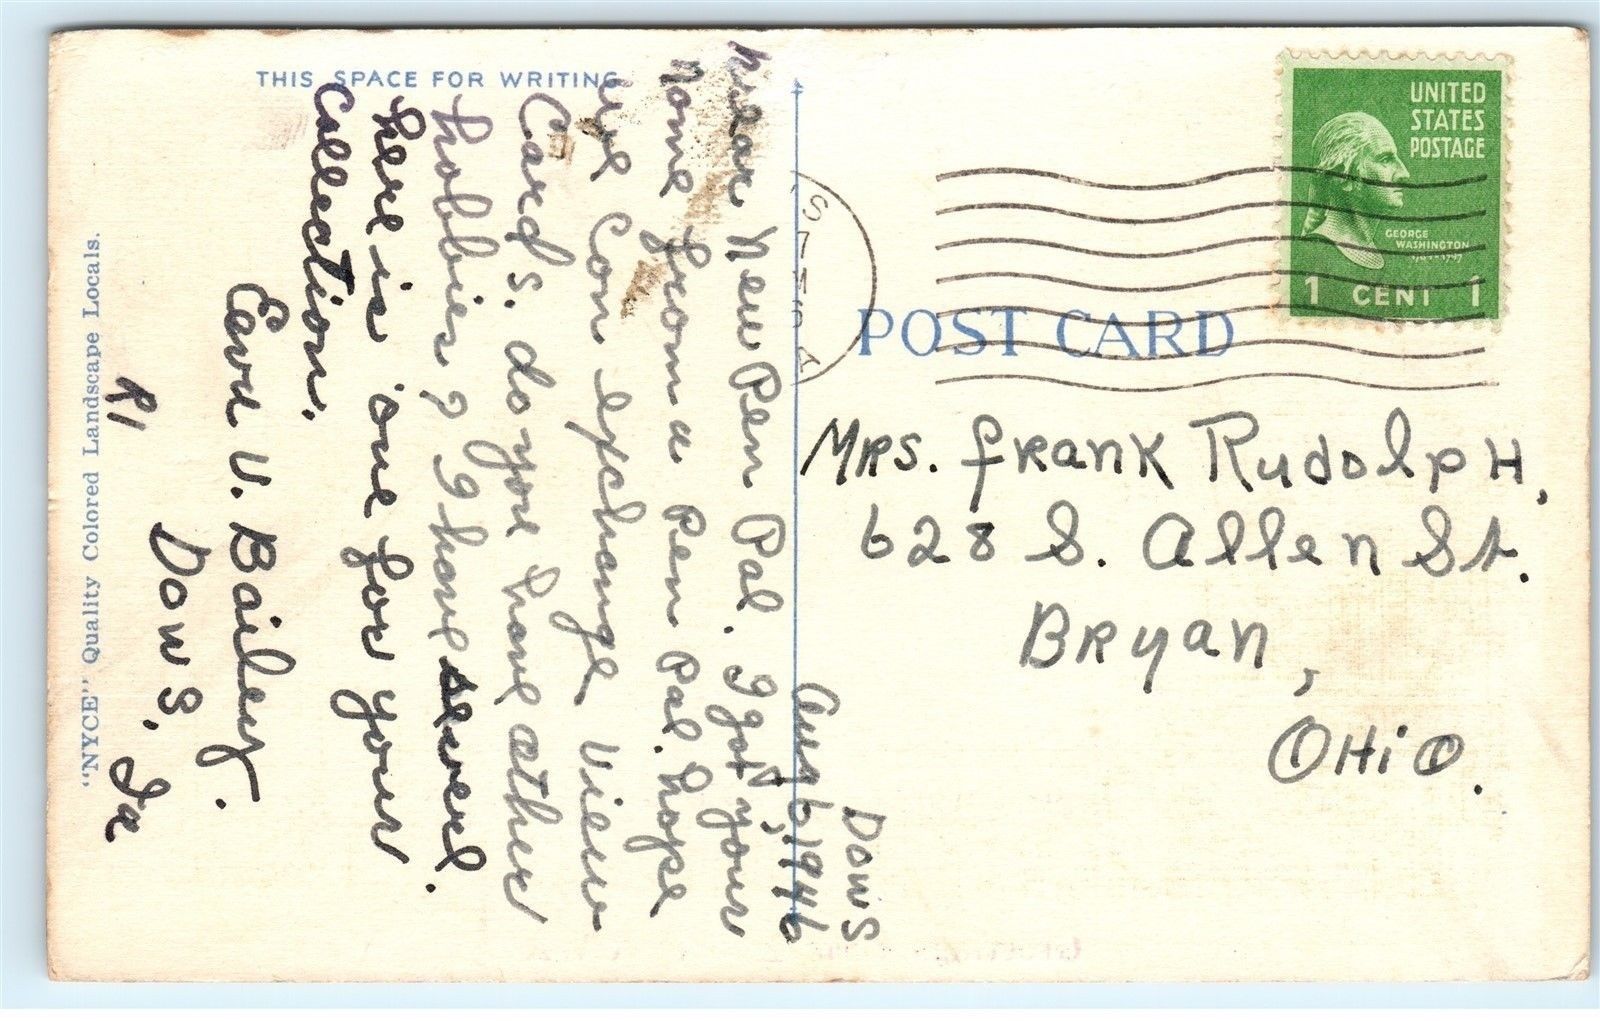 THIS SPACE FOR WRITING
Dows
Aug 6, 1946
Dear New Pen Pal. I got your
Name from a Pen Pal. hope
we Can exchange View
Cards. do you have other
hobbies? I have several.
here is one for your
Collection.
U. Bailey.
R1 Dows, Ia
"NYCE" Quality Colored Landscape Locals.
POST CARD
UNITED
STATES
POSTAGE
GEORGE
WASHINGTON
1 CENT 1
Mrs. Frank Rudolph,
628 S. Allen St.
Bryan,
Ohio.